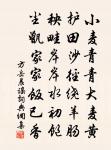 小麦青青大麦黄
护田沙径绕羊肠
秧畦岸岸水初饱
尘甑家家饭已香
方岳农谣词典网集